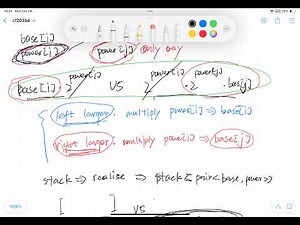 cf2035d
base[j]
power[j] only way
base[i] · 2^power[i] vs 2^power[i] · 2^power[j] · base[j]
left larger: multiply power[i] ⇒ base[i]
right larger: multiply power[i] ⇒ base[j]
stack ⇒ realise ⇒ stack < pair<base, power>>
[ ] vs
100%